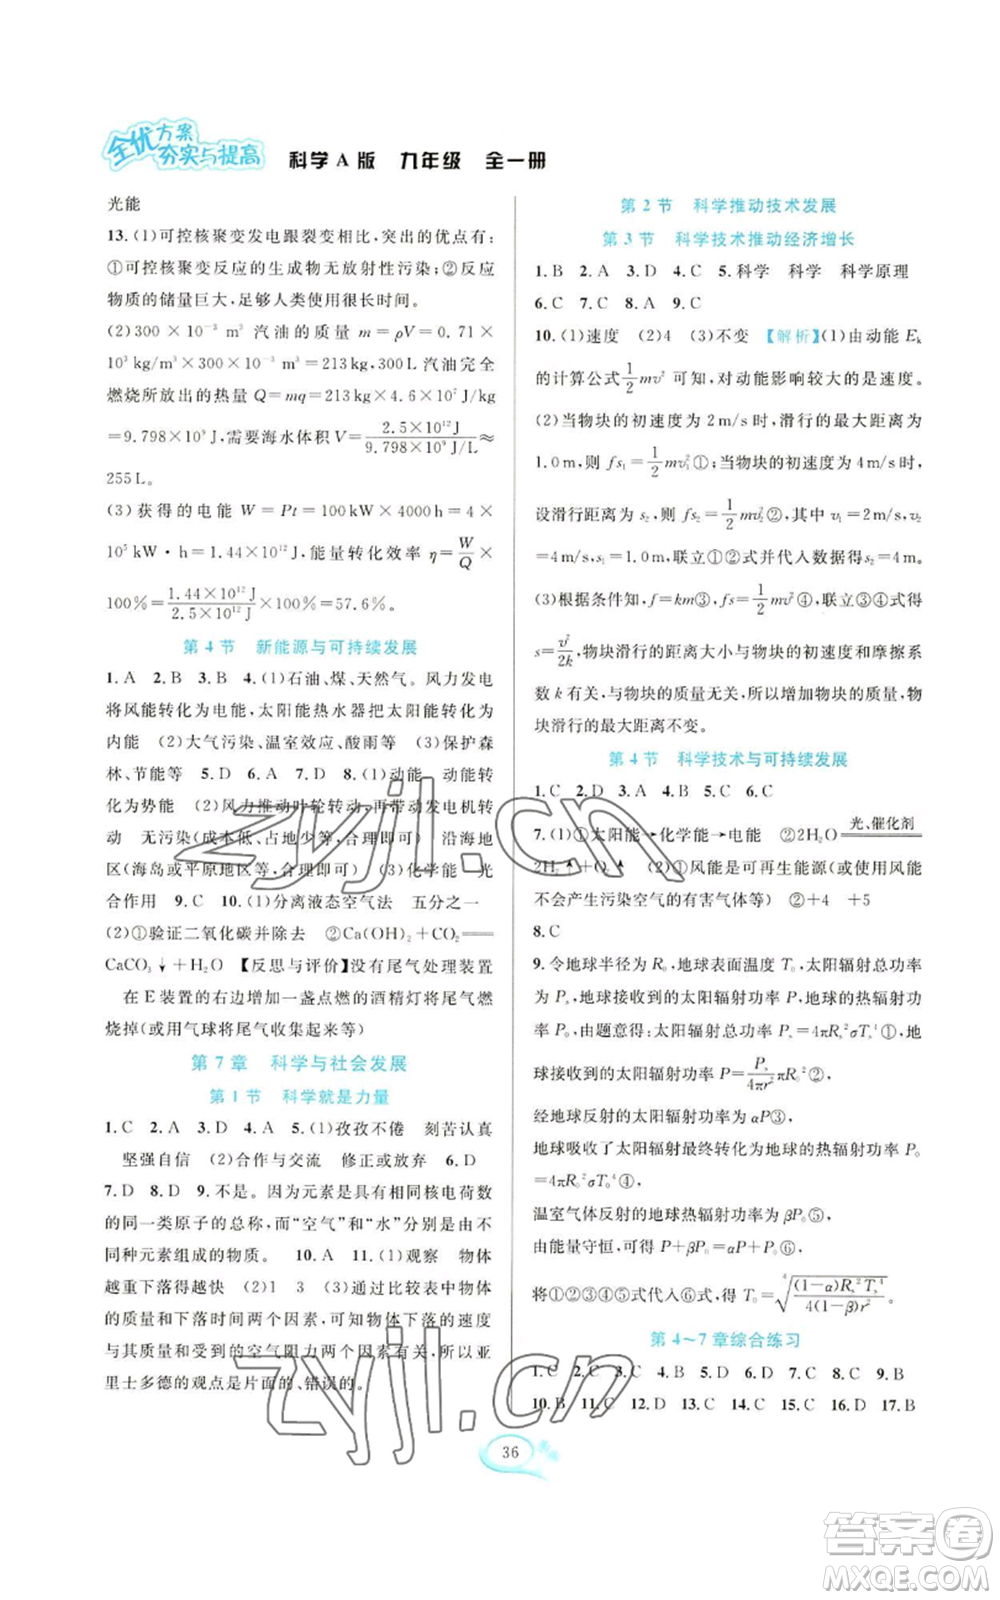 全优方案
夯实与提高
科学A版 九年级 全一册
光能
13.(1)可控核聚变发电跟裂变相比,突出的优点有:
①可控核聚变反应的生成物无放射性污染;②反应
物质的储量巨大,足够人类使用很长时间。
(2)300×10⁻³ m³ 汽油的质量 m=ρV=0.71×
10³ kg/m³×300×10⁻³ m³=213kg,300L汽油完全
燃烧所放出的热量 Q=mq=213kg×4.6×10⁷ J/kg
=9.798×10⁹J,需要海水体积V=2.5×10¹²J/9.798×10⁹J≈
255L。
(3)获得的电能 W=Pt=100kW×4000h=4×
10⁵kW·h=1.44×10¹²J,能量转化效率η=W/Q×
100%=1.44×10¹²J/2.5×10¹²J×100%=57.6%。
第4节 新能源与可持续发展
1.A 2.B 3.B 4.(1)石油、煤、天然气。风力发电
将风能转化为电能,太阳能热水器把太阳能转化为
内能 (2)大气污染、温室效应、酸雨等 (3)保护森
林、节能等 5.D 6.D 7.D 8.(1)动能 动能转
化为势能 (2)风力推动叶轮转动,再带动发电机转
动 无污染(成本低、占地少等,合理即可) 沿海地
区(海岛或平原地区等,合理即可) (3)化学能 光
合作用 9.C 10.(1)分离液态空气法 五分之一
(2)①验证二氧化碳并除去 ②Ca(OH)₂+CO₂=
CaCO₃↓+H₂O 【反思与评价】没有尾气处理装置
在E装置的右边增加一盏点燃的酒精灯将尾气燃
烧掉(或用气球将尾气收集起来等)
第7章 科学与社会发展
第1节 科学就是力量
1.C 2.A 3.D 4.A 5.(1)孜孜不倦 刻苦认真
坚强自信 (2)合作与交流 修正或放弃 6.D
7.D 8.D 9.不是。因为元素是具有相同核电荷数
的同一类原子的总称,而“空气”和“水”分别是由不
同种元素组成的物质。 10.A 11.(1)观察 物体
越重下落得越快 (2)1 3 (3)通过比较表中物体
的质量和下落时间两个因素,可知物体下落的速度
与其质量和受到的空气阻力两个因素有关,所以亚
里士多德的观点是片面的、错误的。
第2节 科学推动技术发展
第3节 科学技术推动经济增长
1.B 2.A 3.D 4.C 5.科学 科学 科学原理
6.C 7.C 8.A 9.C
10.(1)速度 (2)4 (3)不变 【解析】(1)由动能 Eₖ
的计算公式½mv² 可知,对动能影响较大的是速度。
(2)当物块的初速度为2m/s时,滑行的最大距离为
1.0m,则 fs₁=½mv₁²①;当物块的初速度为4m/s时,
设滑行距离为 s₂,则 fs₂=½mv₂²②,其中 v₁=2m/s,v₂
=4m/s,s₁=1.0m,联立①②式并代入数据得 s₂=4m。
(3)根据条件知,f=km③;又 fs=½mv²④,联立③④式得
s=v²/2k,物块滑行的最大距离与物块的初速度和摩擦系
数 k 有关,与物块的质量无关,所以增加物块的质量,物
块滑行的最大距离不变。
第4节 科学技术与可持续发展
1.C 2.D 3.A 4.B 5.C 6.C
7.(1)①太阳能→化学能→电能 ②2H₂O 光、催化剂
2H₂↑+O₂↑ (2)①风能是可再生能源(或使用风能
不会产生污染空气的有害气体等) ②+4 +5
8.C
9.令地球半径为 R₀,地球表面温度 T₀,太阳辐射总功
率 Pₛ,地球接收到的太阳辐射功率 P,地球的热辐射总功
率 P₀,由题意得:太阳辐射总功率 Pₛ=4πRₛ²σTₛ⁴①,地
球接收到的太阳辐射功率 P=Pₛ/4πr² πR₀²②,
经地球反射的太阳辐射功率 αP③,
地球吸收了太阳辐射最终转化为地球的热辐射功率 P₀
=4πR₀²σT₀⁴④,
温室气体反射的地球热辐射功率为 βP₀⑤,
由能量守恒,可得 P+βP₀=αP+P₀⑥,
将①②③④⑤式代入⑥式,得 T₀=⁴√((1−α)Rₛ²Tₛ⁴/4(1−β)r²)。
第4~7章综合练习
1.C 2.C 3.C 4.B 5.B 6.A 7.D 8.C 9.D
10.B 11.C 12.A 13.B 14.B 15.B 16.C 17.B
36
zyjl.cn
zyjl.cn
答案圈
MXQE.COM